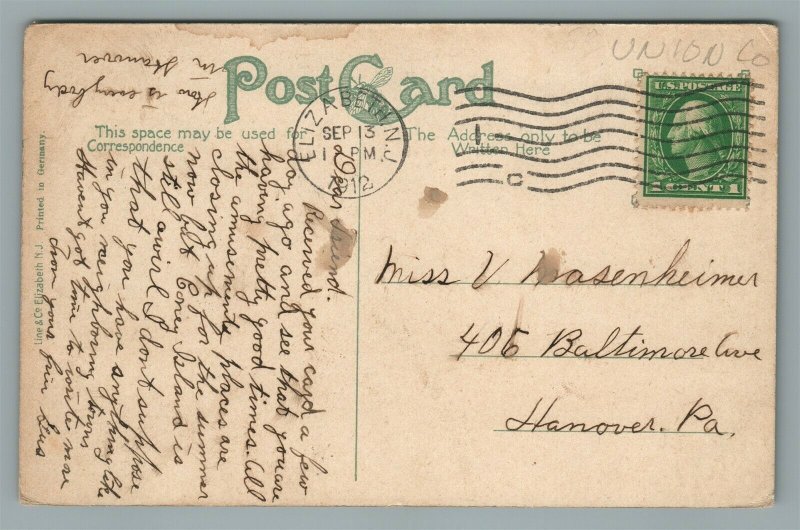 UNION Co
Post Card
This space may be used for
Correspondence
The Address only to be
Written Here
ELIZABETH, N.J.
SEP 13
1 PM
1912
U.S. POSTAGE
1 CENT 1
Miss V. Dasenheimer
406 Baltimore Ave
Hanover. Pa.
Dear Friend.
Received your card a few
day ago and see that you are
having pretty good times. All
the amusements places are
closing up for the summer
now but Coney Island is
still awirl I dont suppose
that you have anything like
in you neighboring towns
Havent got time to write more
from your frin Gus
How is everybody
in Hanover
Line & Co Elizabeth N.J. Printed in Germany.